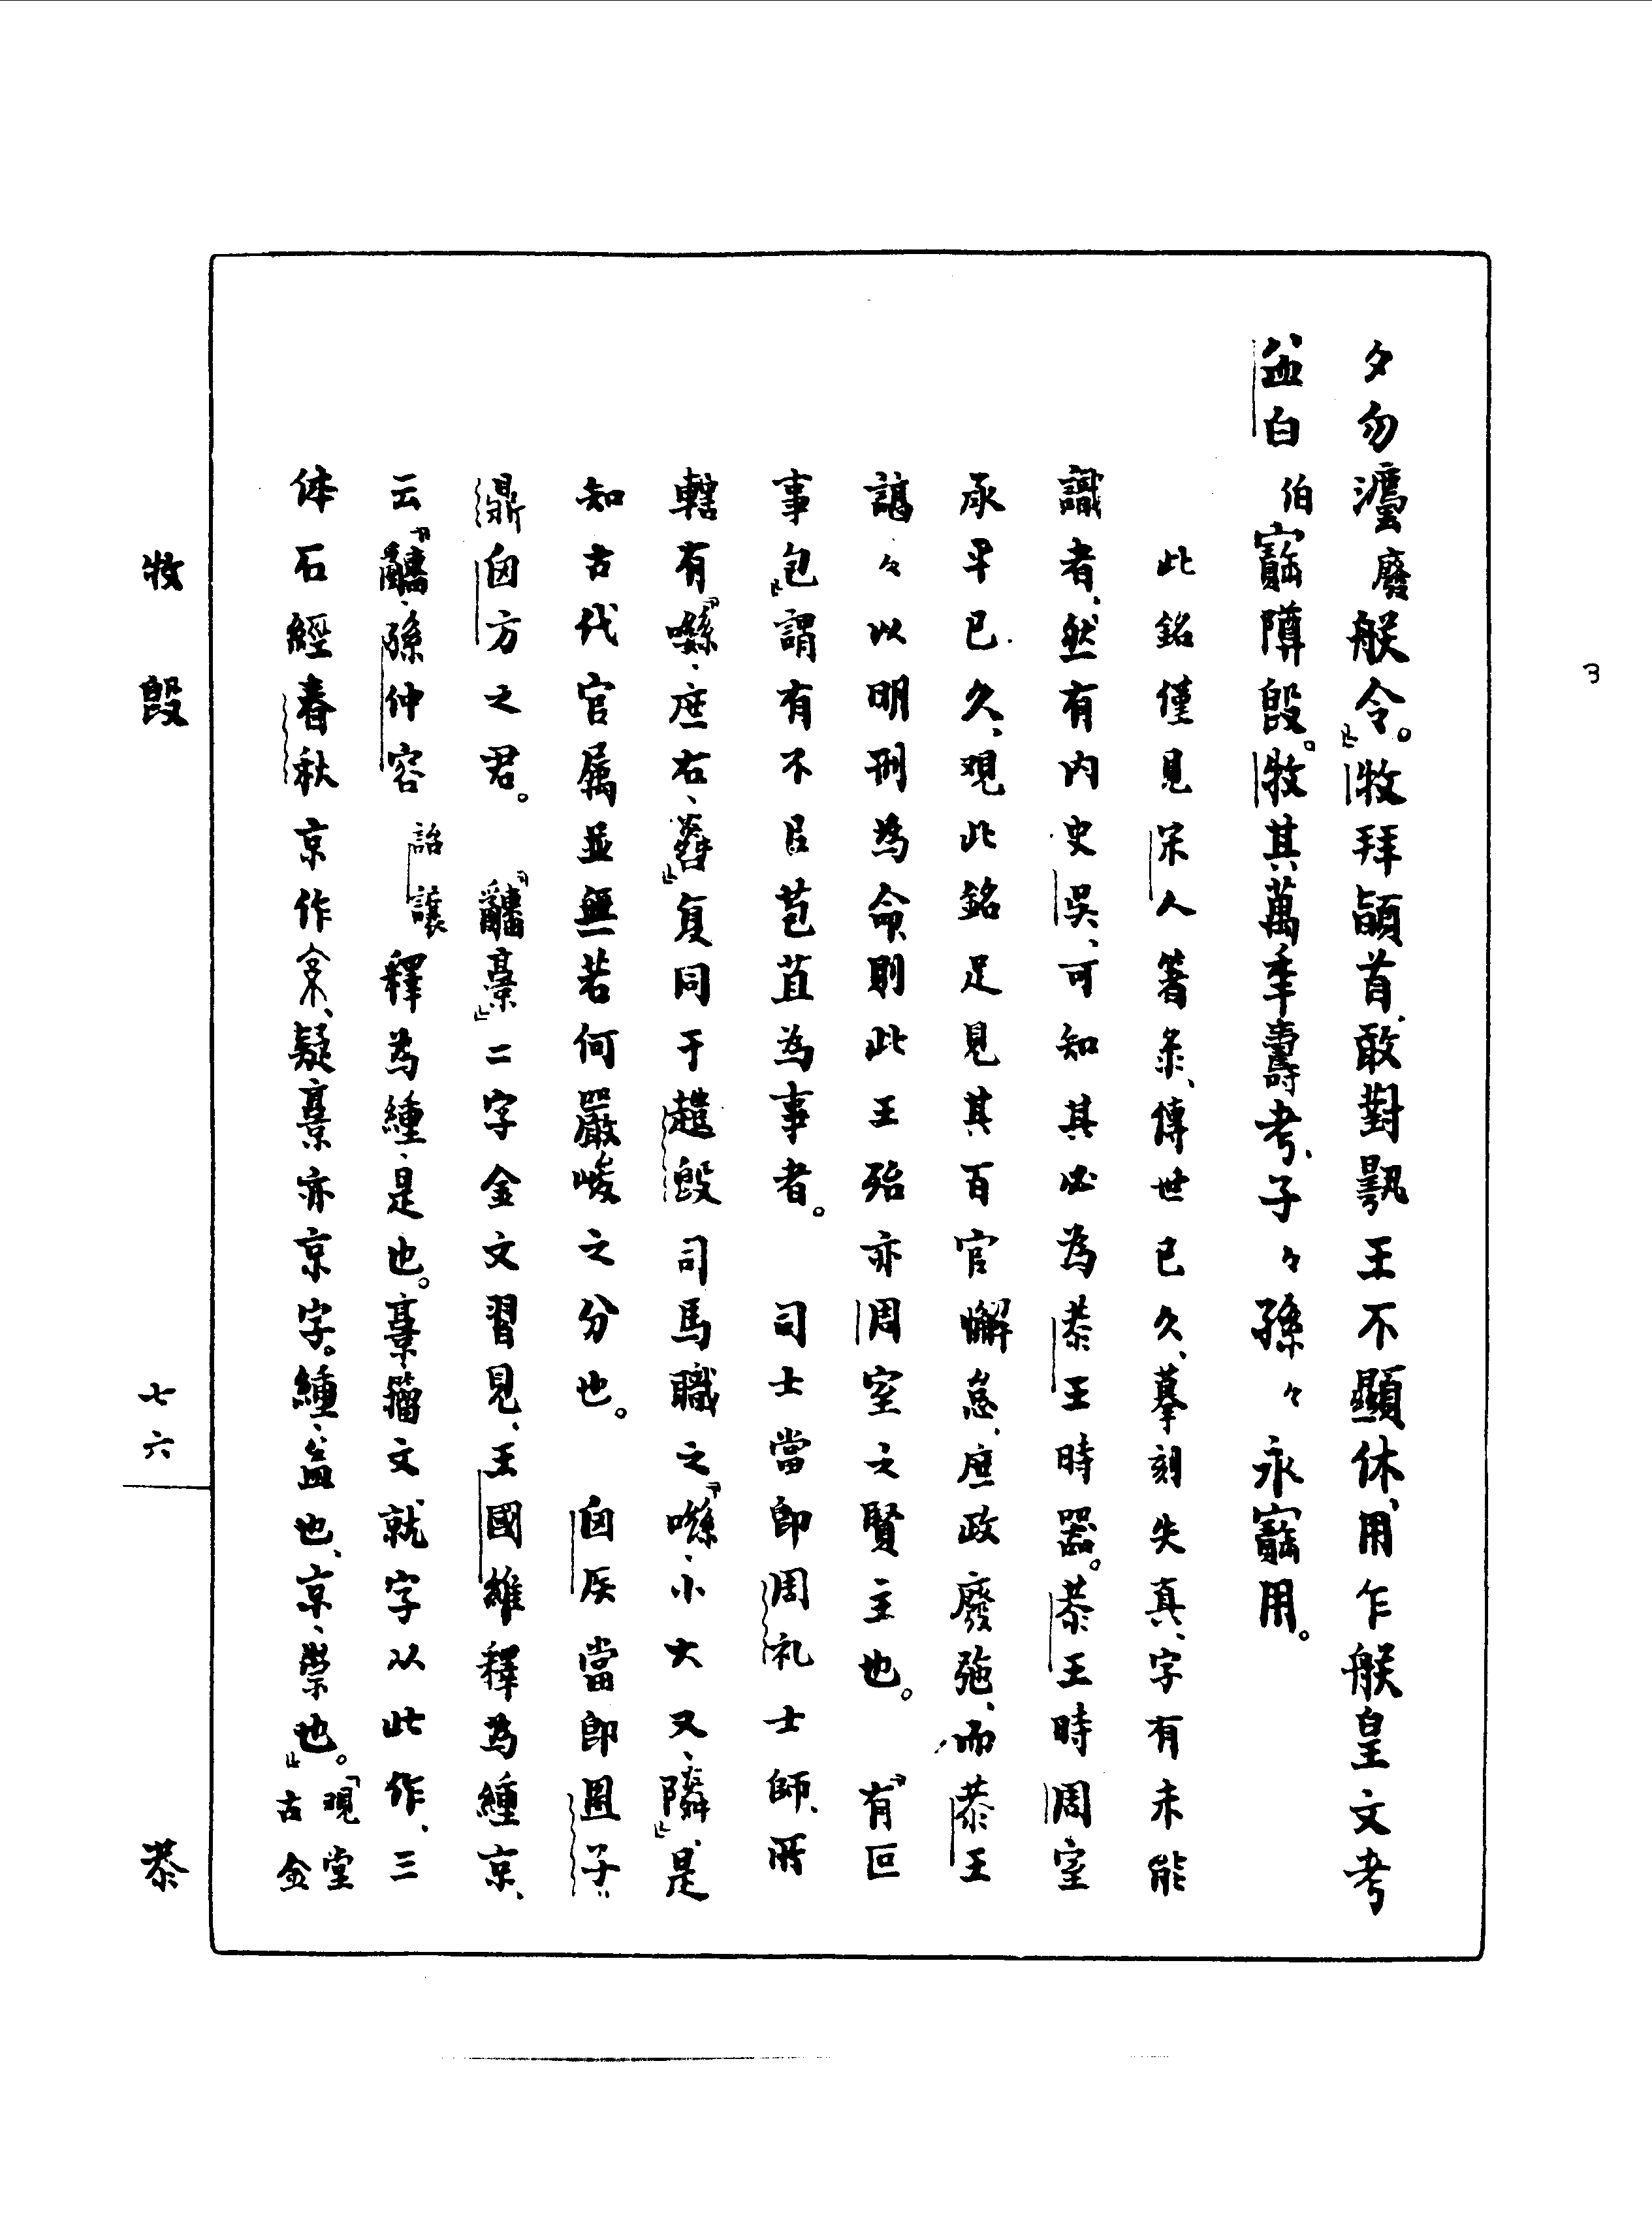 夕勿灋廢朕令。』牧拜𩒨首、敢對䫵王不顯休、用乍朕皇文考
益白伯寶𨺅𣪘。牧其萬年壽考、子々孫々永寶用。
此銘僅見宋人著彔、傳世已久、摹刻失真、字有未能
識者、然有内史吳、可知其必為恭王時器。恭王時周室
承平已久、觀此銘足見其百官懈怠、庶政廢弛、而恭王
諶々以明刑為命、則此王殆亦周室之賢主也。『有叵
事包』謂有不㠯苞苴為事者。司士當即周礼士師、所
轄有『㗊、庶右、粦』复同于趞𣪘司馬職之『㗊、小大又、隣』、是
知古代官屬並無若何嚴峻之分也。囟𥎦當即𨛫子
鼎囟方之君。『𤕌𠅘』二字金文習見、王國維釋為緟京、
云『𤕌、孫仲容詒讓釋為緟、是也。𠅘、籀文就字以此作、三
体石經春秋京作、疑𠅘亦京字。緟、益也、京、崇也。』『觀堂古金
牧𣪘
七六
恭
3